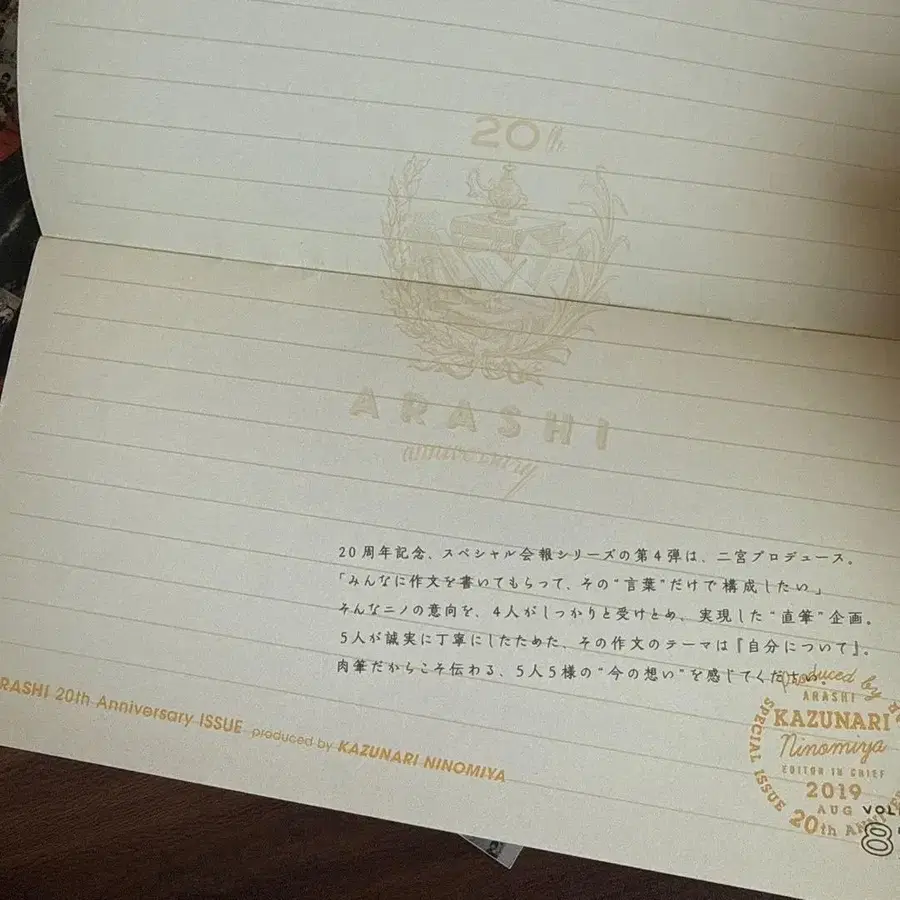 20th
ARASHI
anniversary
20周年記念、スペシャル会報シリーズの第4弾は、二宮プロデュース。
「みんなに作文を書いてもらって、その"言葉"だけで構成したい」
そんなニノの意向を、4人がしっかりと受けとめ、実現した"直筆"企画。
5人が誠実に丁寧にしたためた、その作文のテーマは『自分について』。
肉筆だからこそ伝わる、5人5様の"今の想い"を感じてください。
RASHI 20th Anniversary ISSUE produced by KAZUNARI NINOMIYA
produced by
ARASHI
KAZUNARI
Ninomiya
EDITOR IN CHIEF
2019
AUG
SPECIAL ISSUE 20th
VOL
8